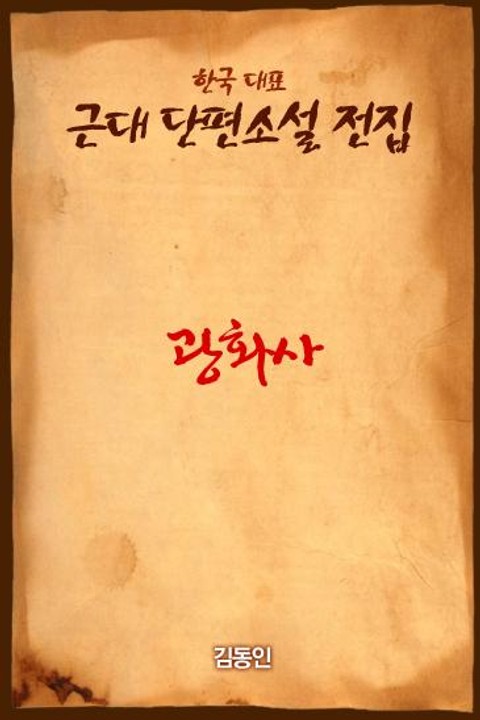 한국 대표
근대 단편소설 전집
광화사
김동인